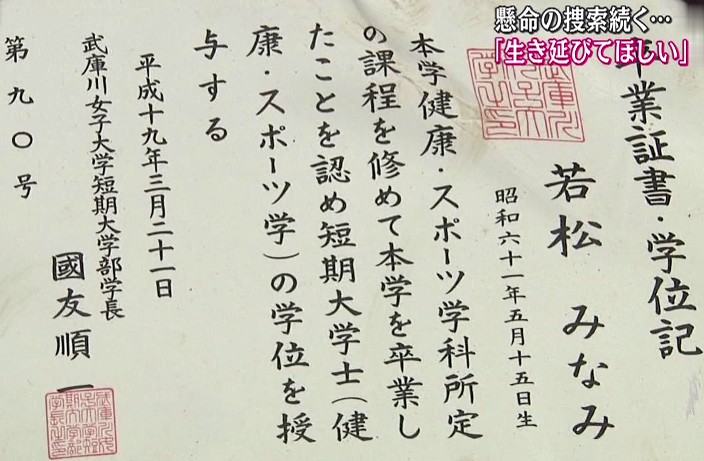 懸命の捜索続く…
「生き延びてほしい」
卒業証書・学位記
若松 みなみ
昭和六十一年五月十五日生
本学健康・スポーツ学科所定
の課程を修めて本学を卒業し
たことを認め短期大学士(健
康・スポーツ学)の学位を授
与する
平成十九年三月二十一日
武庫川女子大学短期大学部学長
國友順一
第九〇号